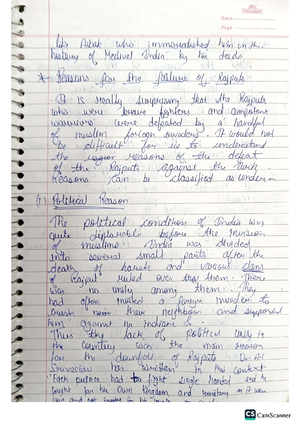 Date
Page
like Aibak who immortalished him in the
history of Medivel India by his deeds
* Reasons for the failure of Rajputs
It is really surprising that the Rajputs
who were brave fighters and competent
warriors were defeated by a handful
of muslim foreign invaders. It would not
be difficult for us to understand
the reasons of the defeat
of the Rajputs against the Turk
Reasons can be classified as under-
(1) Political Reason
The political condition of India was
quite deplorable before the invasion
of muslims. India was divided
into several small parts after the
death of harsh and various clans
of Rajput ruled over them. There
was no unity among them. They
had often invited a foreign invader to
crush near their neighbour and supported
him against
Thus the lack of political unity in
the countries was the main reason
for the downfall of Rajputs. Dr. A.L
Srivastav has written in this context
"Each prince had to fight single handed and he
fought for his own kingdom and it were
CS CamScanner